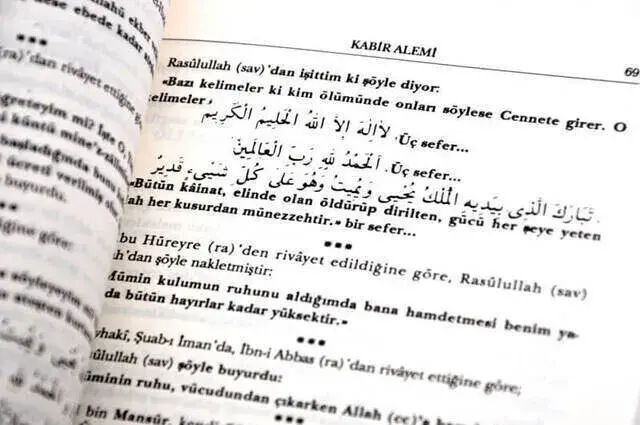 KABİR ALEMİ
69
Rasûlullah (sav)'dan işittim ki şöyle diyor:
«Bazı kelimeler ki kim ölümünde onları söylese Cennete girer. O
kelimeler
لاَاِلٰهَ اِلاَّ اللهُ الْحَلِيمُ الْكَرِيمُ .Üç sefer...
اَلْحَمْدُ لِلّٰهِ رَبِّ الْعَالَمِينَ .Üç sefer...
تَبَارَكَ الَّذِى بِيَدِيهِ الْمُلْكُ يُحْيِى وَيُمِيتُ وَهُوَ عَلَى كُلِّ شَيْىءٍ قَدِيرٌ .
«Bütün kâinat, elinde olan öldürüp dirilten, gücü her şeye yeten
her kusurdan münezzehtir.» bir sefer...
***
bu Hüreyre (ra)'den rivâyet edildiğine göre, Rasûlullah (sav)
şöyle nakletmiştir:
kulumun ruhunu aldığımda bana hamdetmesi benim ya-
da bütün hayırlar kadar yüksektir.»
***
Şuab-ı İman'da, İbn-i Abbas (ra)'dan rivâyet ettiğine göre;
(sav) şöyle buyurdu:
ruhu, vücudundan çıkarken Allah (cc)'a
***
bin Mansûr,
ekber
ebede kadar
***
(ra)'dan rivâyet ettiğine
mi? İşte O,
mine'z-
başladığında
ücreti verilmiş
buyurdu.
***
göre: